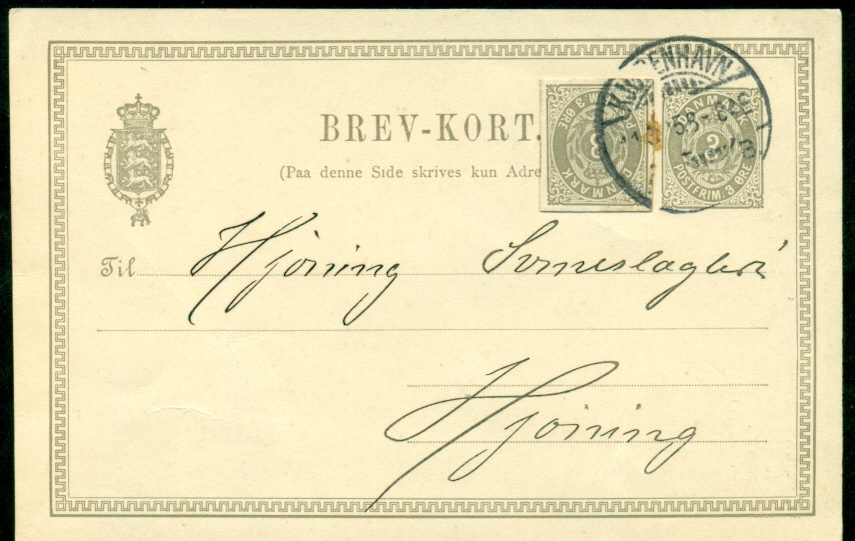 KJØBENHAVN
DANMARK
3
POSTFRIM. 3 ØRE
BREV-KORT.
M. 3 ØRE
DANMARK
(Paa denne Side skrives kun Adre
Til Hjörring Svineslagteri
Hjörring